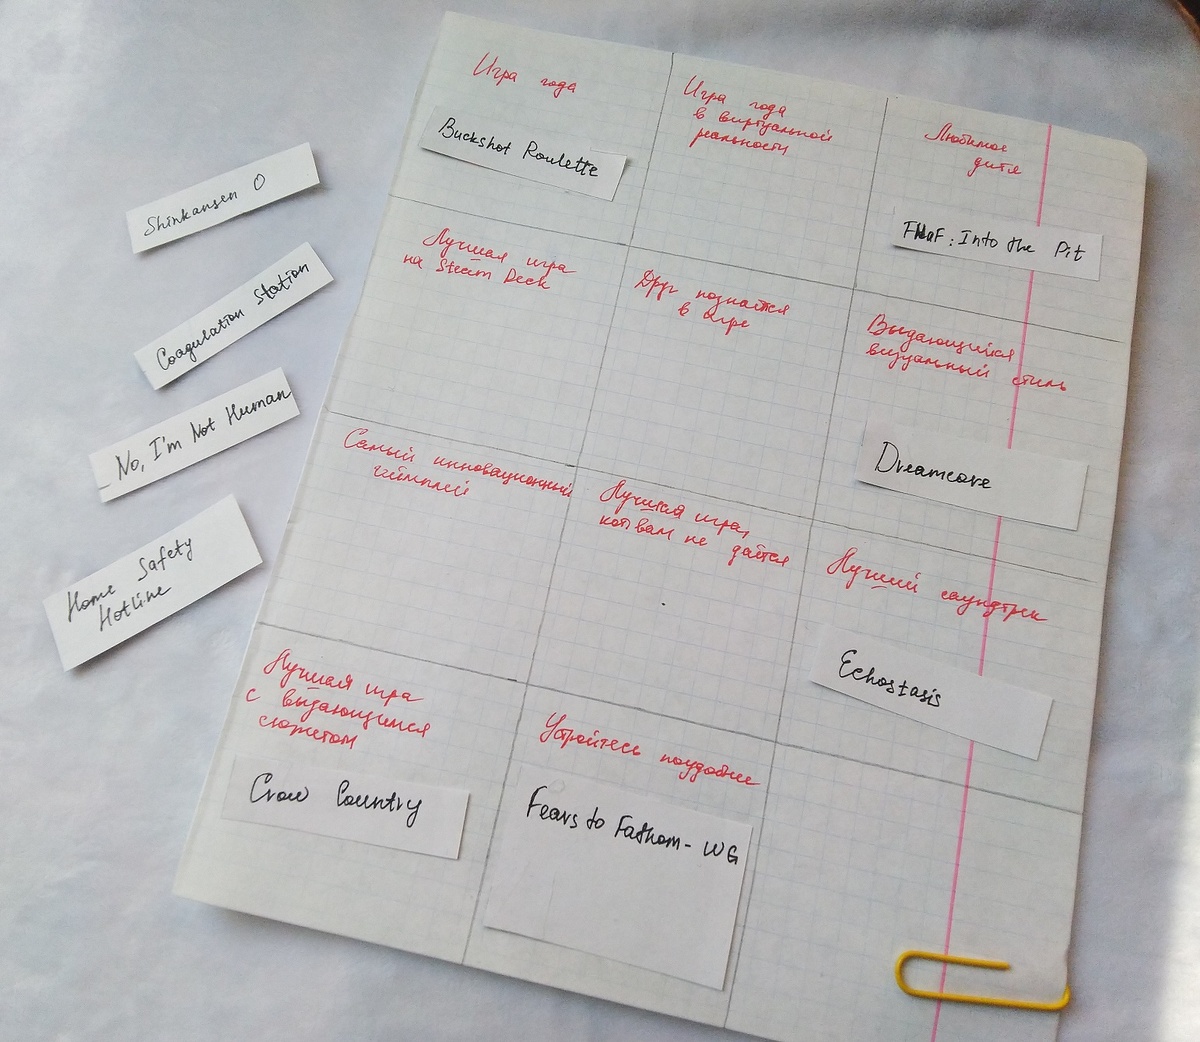 Shinkansen 0
Coagulation Station
No, I'm Not Human
Home Safety
Hotline
Игра года
Buckshot Roulette
Игра года
в виртуальной
реальности
Любимое
дитя
FNaF: Into the Pit
Лучшая игра
на Steam Deck
Друг познаётся
в игре
Выдающийся
визуальный стиль
Dreamcore
Самый инновационный
геймплей
Лучшая игра,
кот. вам не даётся
Лучший саундтрек
Echostasis
Лучшая игра
с выдающимся
сюжетом
Crow Country
Устройтесь поудобнее
Fears to Fathom - WG